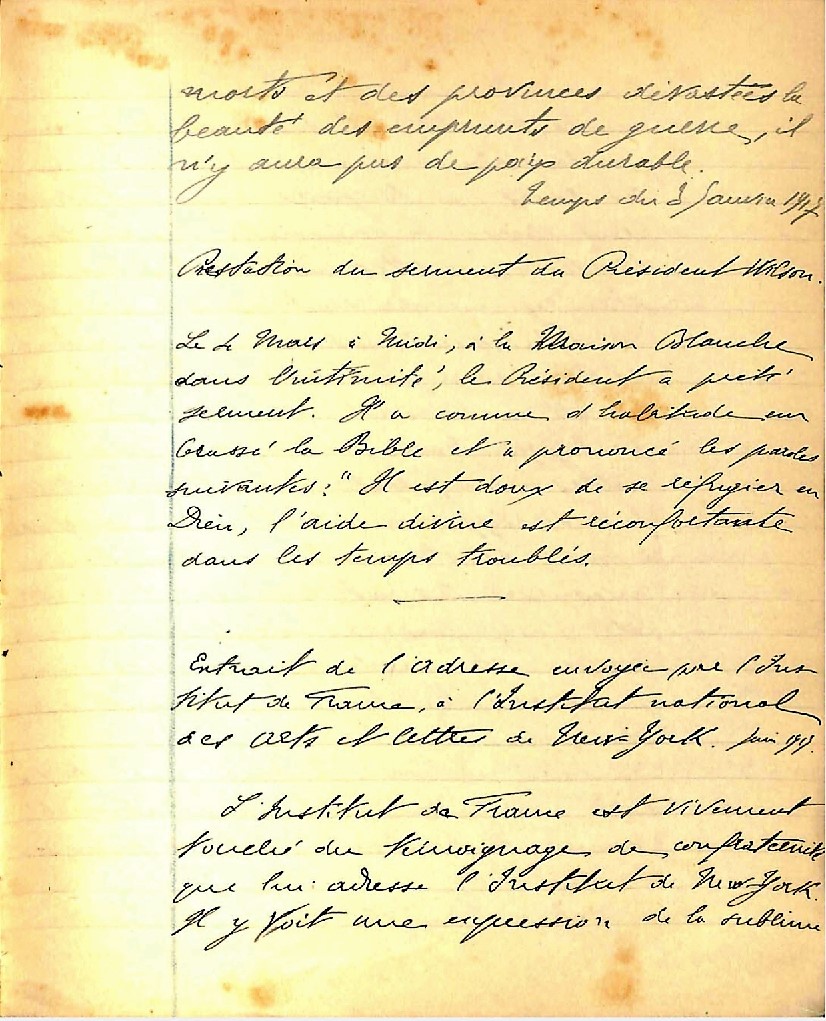 morts et des provinces dévastées la
beauté des emprunts de guerre, il
n'y aura pas de paix durable.
Temps du 8 Janvier 1917
Prestation du serment du Président Wilson.
Le 4 Mars à Midi, à la Maison Blanche
dans l'intimité, le Président a prêté
serment. Il a comme d'habitude em
brassé la Bible et a prononcé les paroles
suivantes: "Il est doux de se réfugier en
Dieu, l'aide divine est réconfortante
dans les temps troublés.
Extrait de l'adresse envoyée par l'Ins
titut de France, à l'Institut national
des arts et lettres de New-York. Juin 1917.
L'Institut de France est vivement
touché du témoignage de confraternité
que lui adresse l'Institut de New-York.
Il y voit une expression de la sublime